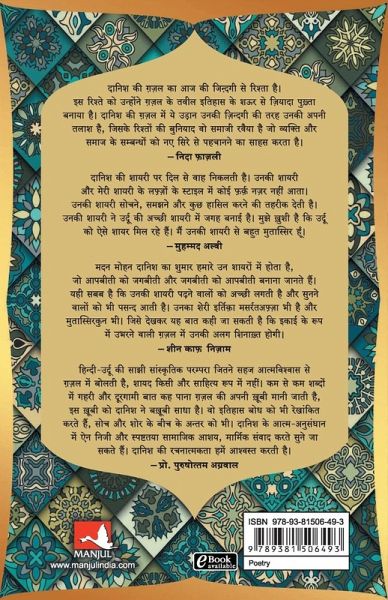 दानिश की ग़ज़ल का आज की ज़िन्दगी से रिश्ता है।
इस रिश्ते को उन्होंने ग़ज़ल के तवील इतिहास के शऊर से ज़ियादा पुख़्ता
बनाया है। दानिश की ग़ज़ल में ये उड़ान उनकी ज़िन्दगी की तरह उनकी अपनी
तलाश है, जिसके रिश्तों की बुनियाद वो समाजी रवैया है जो व्यक्ति और
समाज के सम्बन्धों को नए सिरे से पहचानने का साहस करता है।
—निदा फ़ाज़ली
दानिश की शायरी पर दिल से वाह निकलती है। उनकी शायरी
और मेरी शायरी के लफ़्ज़ों के स्टाइल में कोई फ़र्क़ नज़र नहीं आता।
उनकी शायरी सोचने, समझने और कुछ हासिल करने की तहरीक देती है।
उनकी शायरी ने उर्दू की अच्छी शायरी में जगह बनाई है। मुझे ख़ुशी है कि उर्दू
को ऐसे शायर मिल रहे हैं। मैं उनकी शायरी से बहुत मुतास्सिर हूँ।
—मुहम्मद अल्वी
मदन मोहन दानिश का शुमार हमारे उन शायरों में होता है,
जो आपबीती को जगबीती और जगबीती को आपबीती बनाना जानते हैं।
यही सबब है कि उनकी शायरी पढ़ने वालों को अच्छी लगती है और सुनने
वालों को भी पसन्द आती है। उनका शेरी इर्तिक़ा मसर्रतअफ़्ज़ा भी है और
मुतास्सिरकुन भी। जिसे देखकर यह बात कही जा सकती है कि इकाई के रूप
में उभरने वाली ग़ज़ल में उनकी अलग शिनाख़्त होगी।
—शीन काफ़ निज़ाम
हिन्दी-उर्दू की साझी सांस्कृतिक परम्परा जितने सहज आत्मविश्वास से
ग़ज़ल में बोलती है, शायद किसी और साहित्य रूप में नहीं। कम से कम शब्दों
में गहरी और दूरगामी बात कह पाना ग़ज़ल की अपनी ख़ूबी मानी जाती है,
इस ख़ूबी को दानिश ने बख़ूबी साधा है। वो इतिहास बोध को भी रेखांकित
करते हैं, सोच और शोर के बीच के अन्तर को भी। दानिश के आत्म-अनुसंधान
में ऐन निजी और स्पष्टतया सामाजिक आशय, मार्मिक संवाद करते सुने जा
सकते हैं। दानिश की रचनात्मकता हमें आश्वस्त करती है।
—प्रो. पुरुषोत्तम अग्रवाल
MANJUL
www.manjulindia.com
eBook
available
ISBN 978-93-81506-49-3
9 789381 506493
Poetry